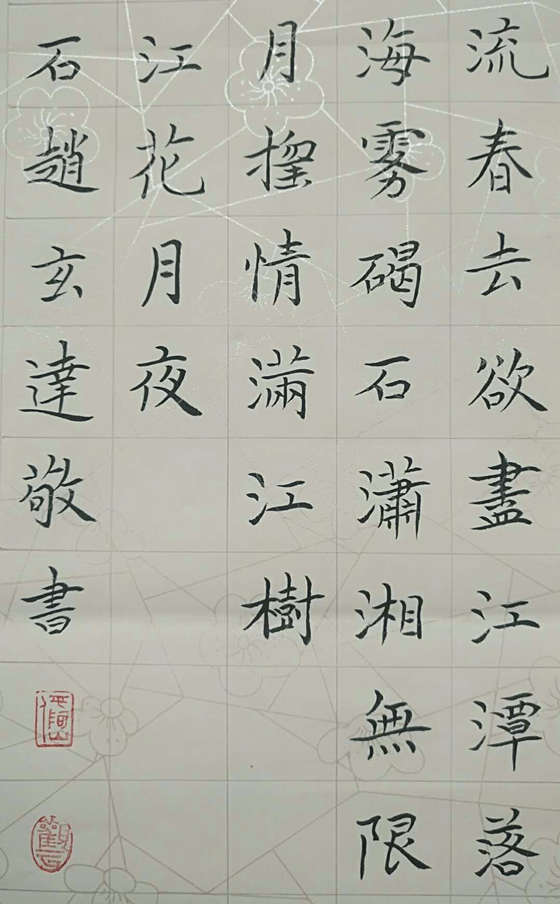 流春去欲盡江潭落
海雾碣石瀟湘無限
月摇情滿江樹
江花月夜
石趙玄達敬書